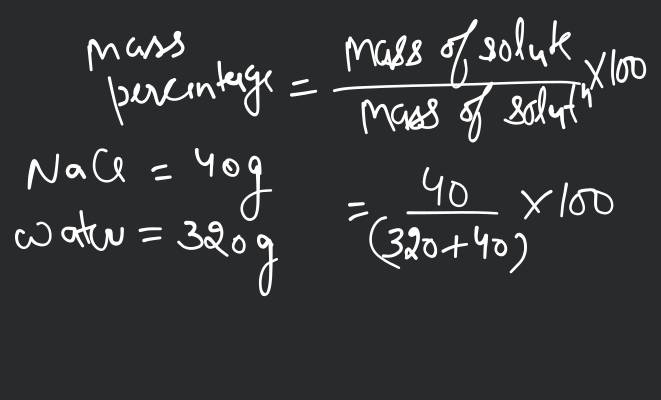 mass
percentage = mass of solute / mass of solutⁿ × 100
NaCl = 40g
water = 320g
= 40 / (320+40) × 100